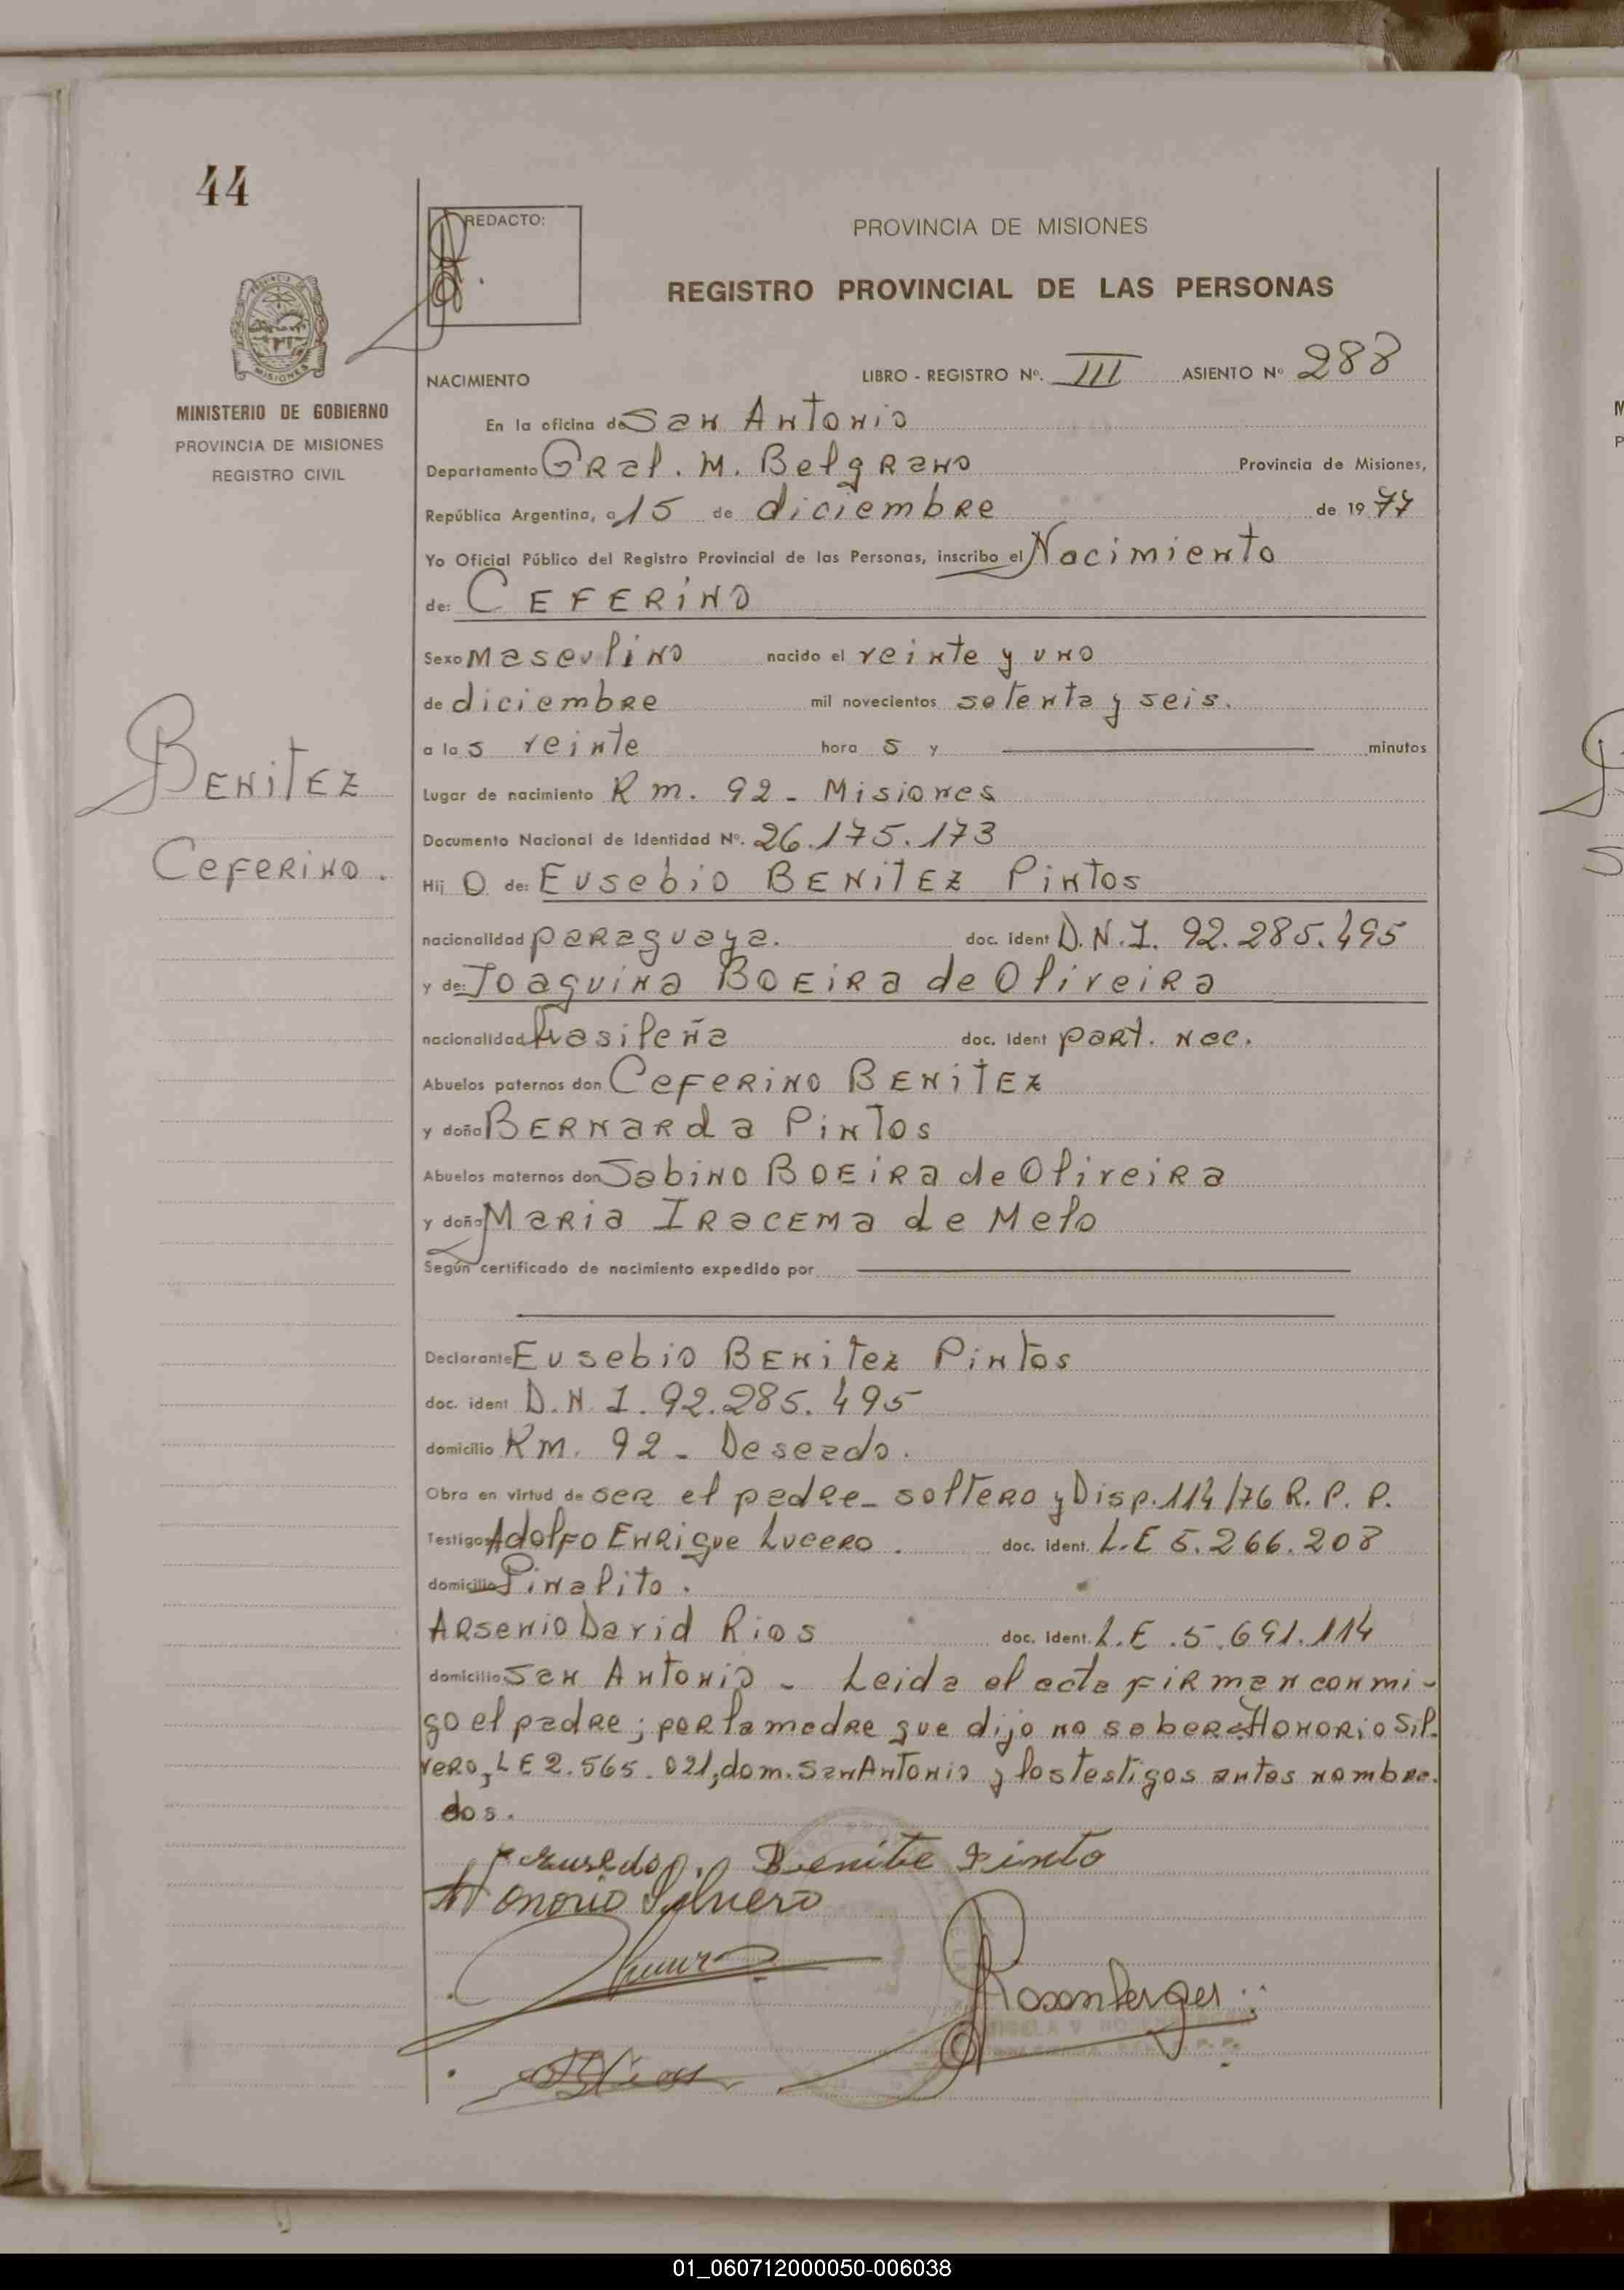 44
REDACTO:
PROVINCIA DE MISIONES
REGISTRO PROVINCIAL DE LAS PERSONAS
MISIONES
MINISTERIO DE GOBIERNO
PROVINCIA DE MISIONES
REGISTRO CIVIL
NACIMIENTO LIBRO - REGISTRO Nº. III ASIENTO Nº 288
En la oficina de San Antonio
Departamento Gral. M. Belgrano Provincia de Misiones,
República Argentina, a 15 de diciembre de 1977
Yo Oficial Público del Registro Provincial de las Personas, inscribo el Nacimiento
de: CEFERINO
Sexo masculino nacido el veinte y uno
de diciembre mil novecientos setenta y seis.
a las veinte horas y minutos
Benitez
Ceferino.
Lugar de nacimiento Km. 92 - Misiones
Documento Nacional de Identidad Nº. 26.175.173
Hijo de: Eusebio BENITEZ Pintos
nacionalidad paraguaya. doc. ident D.N.I. 92.285.495
y de: Joaquina BOEIRA de Oliveira
nacionalidad brasileña doc. ident part. nac.
Abuelos paternos don Ceferino BENITEZ
y doña BERNARDA Pintos
Abuelos maternos don Sabino BOEIRA de Oliveira
y doña Maria IRACEMA de Melo
Según certificado de nacimiento expedido por
Declarante Eusebio BENITEZ Pintos
doc. ident D.N.I. 92.285.495
domicilio Km. 92 - Deseado.
Obra en virtud de ser el padre - soltero y Disp. 114/76 R. P. P.
Testigos Adolfo Enrique Lucero. doc. ident. L.E 5.266.208
domicilio Piñalito.
Arsenio David Rios doc. ident. L.E. 5.691.114
domicilio San Antonio - Leida el acta firman conmi-
go el padre; por la madre que dijo no saber Honorio Sil-
vero, L E 2.565.021, dom. San Antonio y los testigos antes nombra-
dos.
Benite Pinto
Honorio Silvero
Rosenberger
01_060712000050-006038